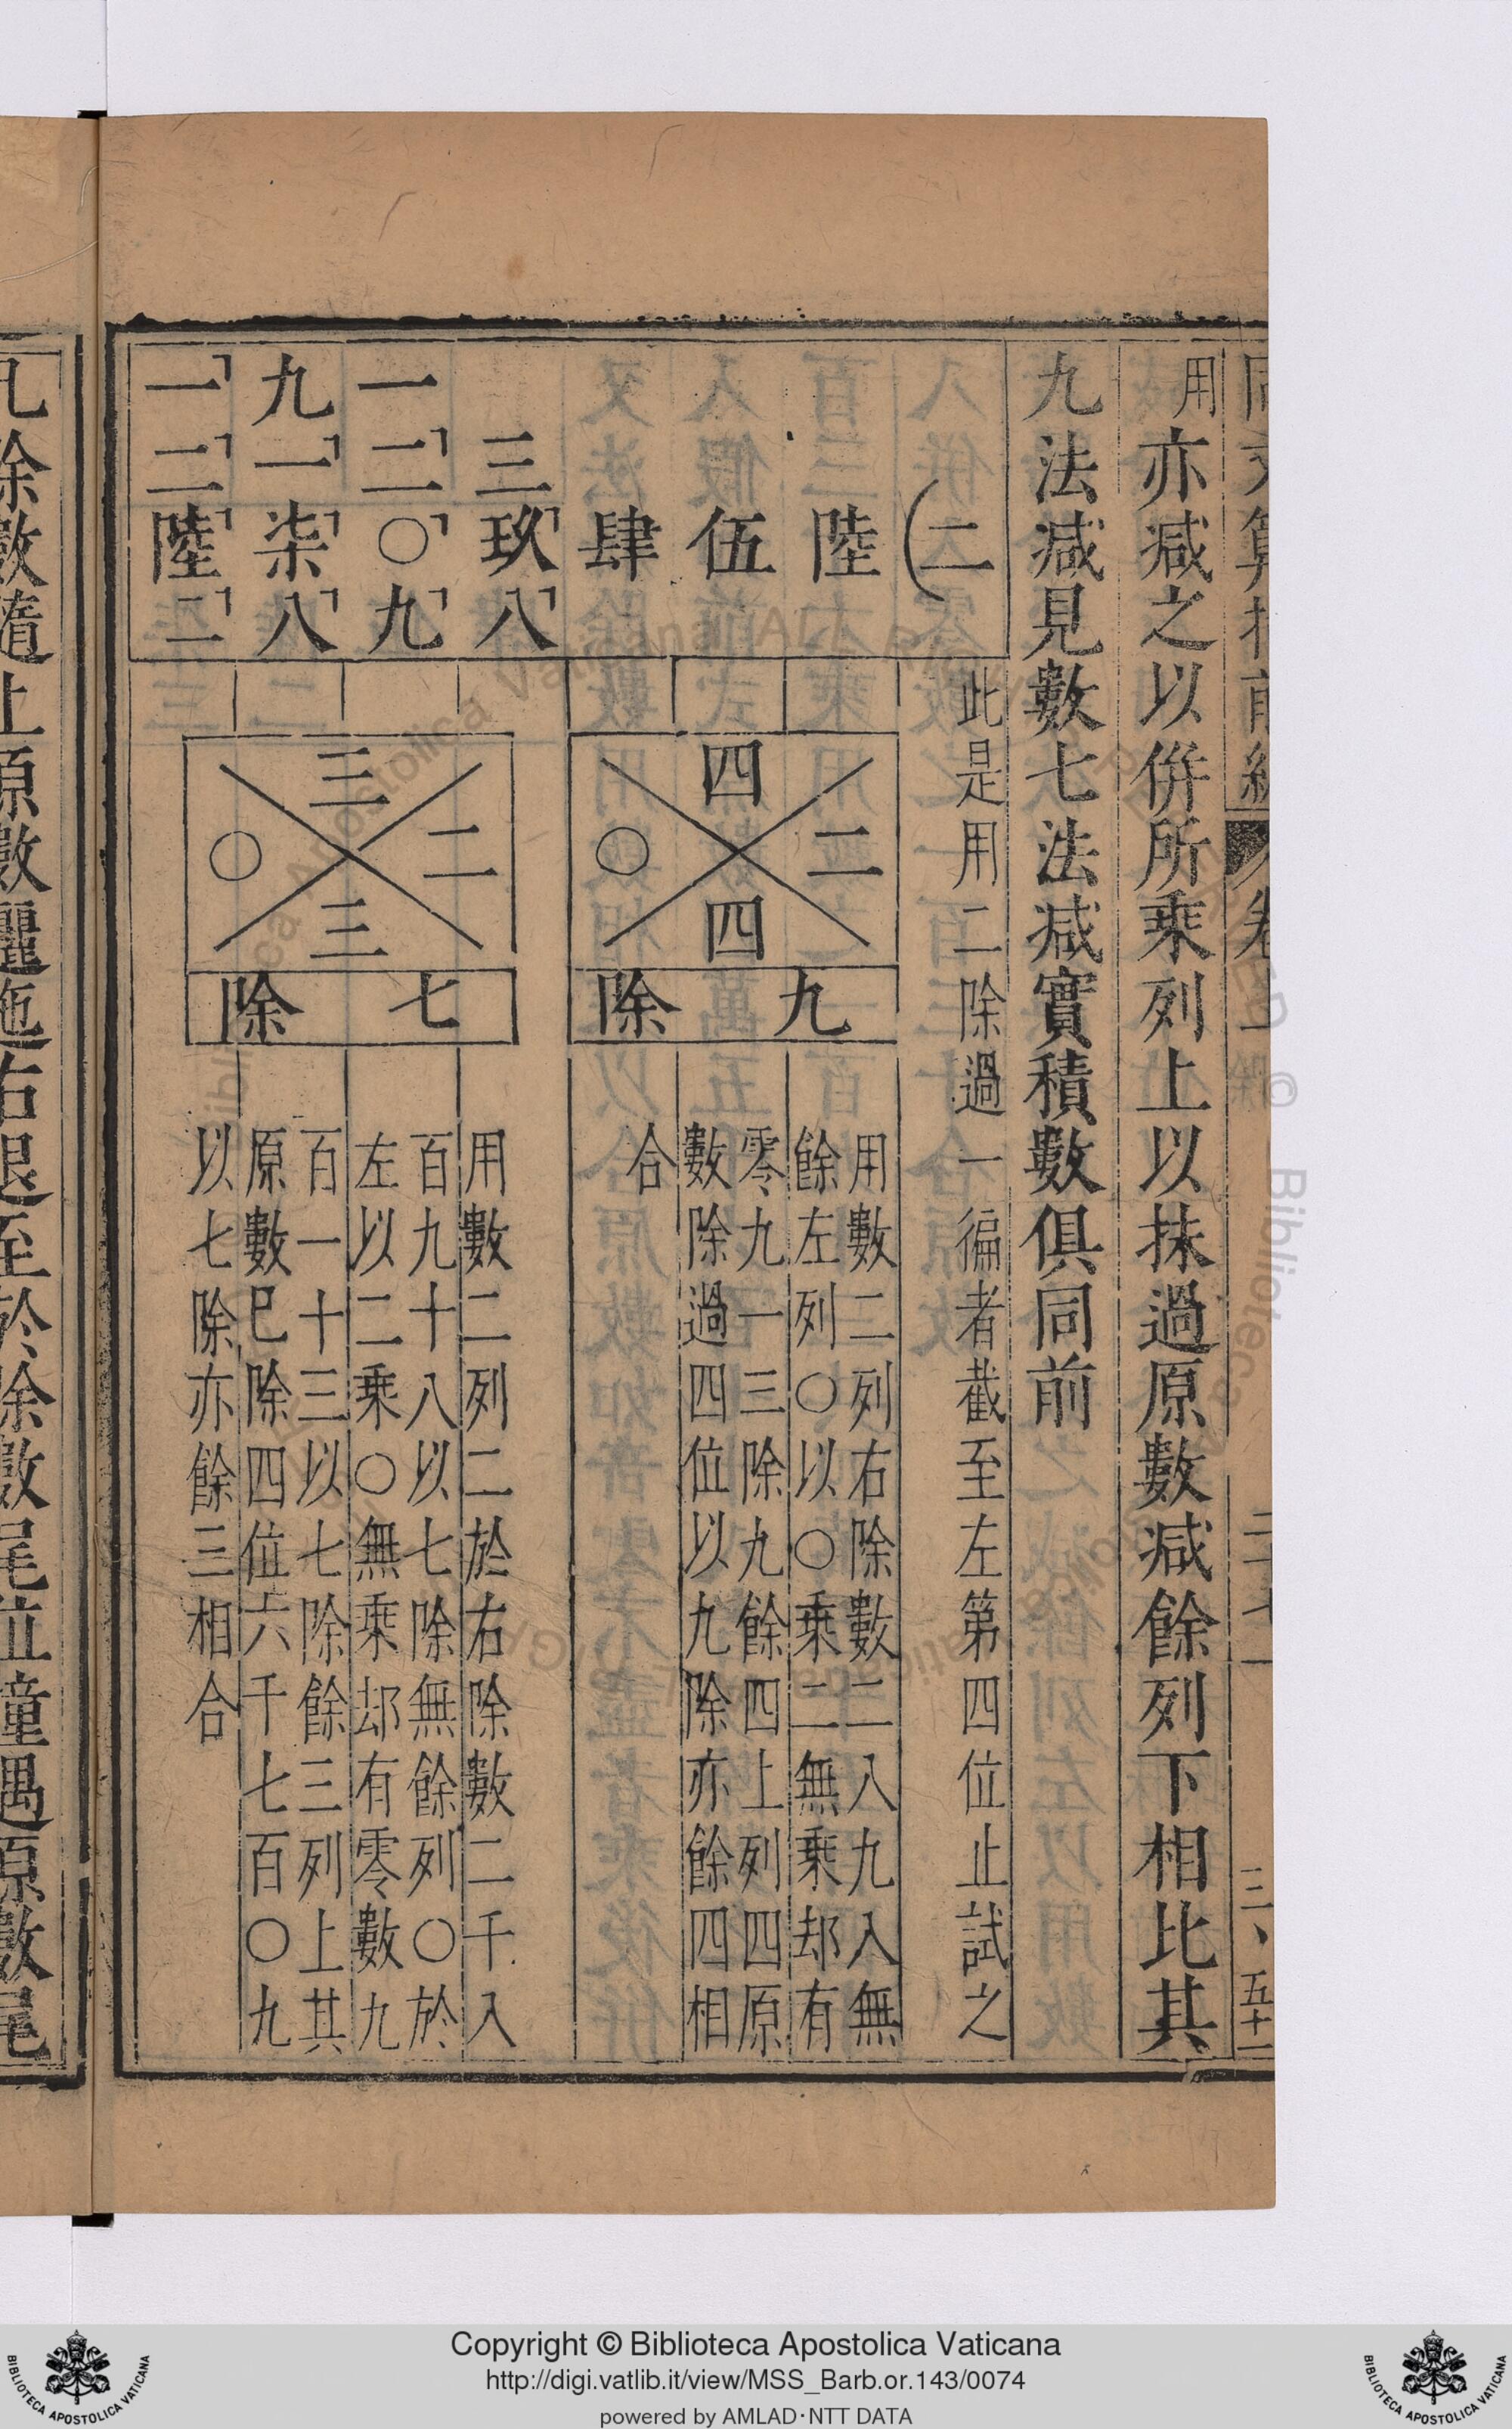 用亦减之以併所乘列上以抹過原數减餘列下相比其
九法减見數七法减實積數俱同前
此是用二除過一徧者截至左第四位止試之
二
陸
伍
肆
三玖八
一二〇九
九一柒八
一二陸二
四
二
〇
四
九除
用數二列右除數二入九入無
餘左列〇以〇乘二無乘却有
零九一三除九餘四上列四原
數除過四位以九除亦餘四相
合
三
二
〇
三
七除
用數二列二於右除數二千入
百九十八以七除無餘列〇於
左以二乘〇無乘却有零數九
百一十三以七除餘三列上其
原數巳除四位六千七百〇九
以七除亦餘三相合
除數隨上原數邐迤右退至於除數尾位撞遇原數尾
Copyright © Biblioteca Apostolica Vaticana
http://digi.vatlib.it/view/MSS_Barb.or.143/0074
powered by AMLAD·NTT DATA
BIBLIOTECA APOSTOLICA VATICANA
BIBLIOTECA APOSTOLICA VATICANA